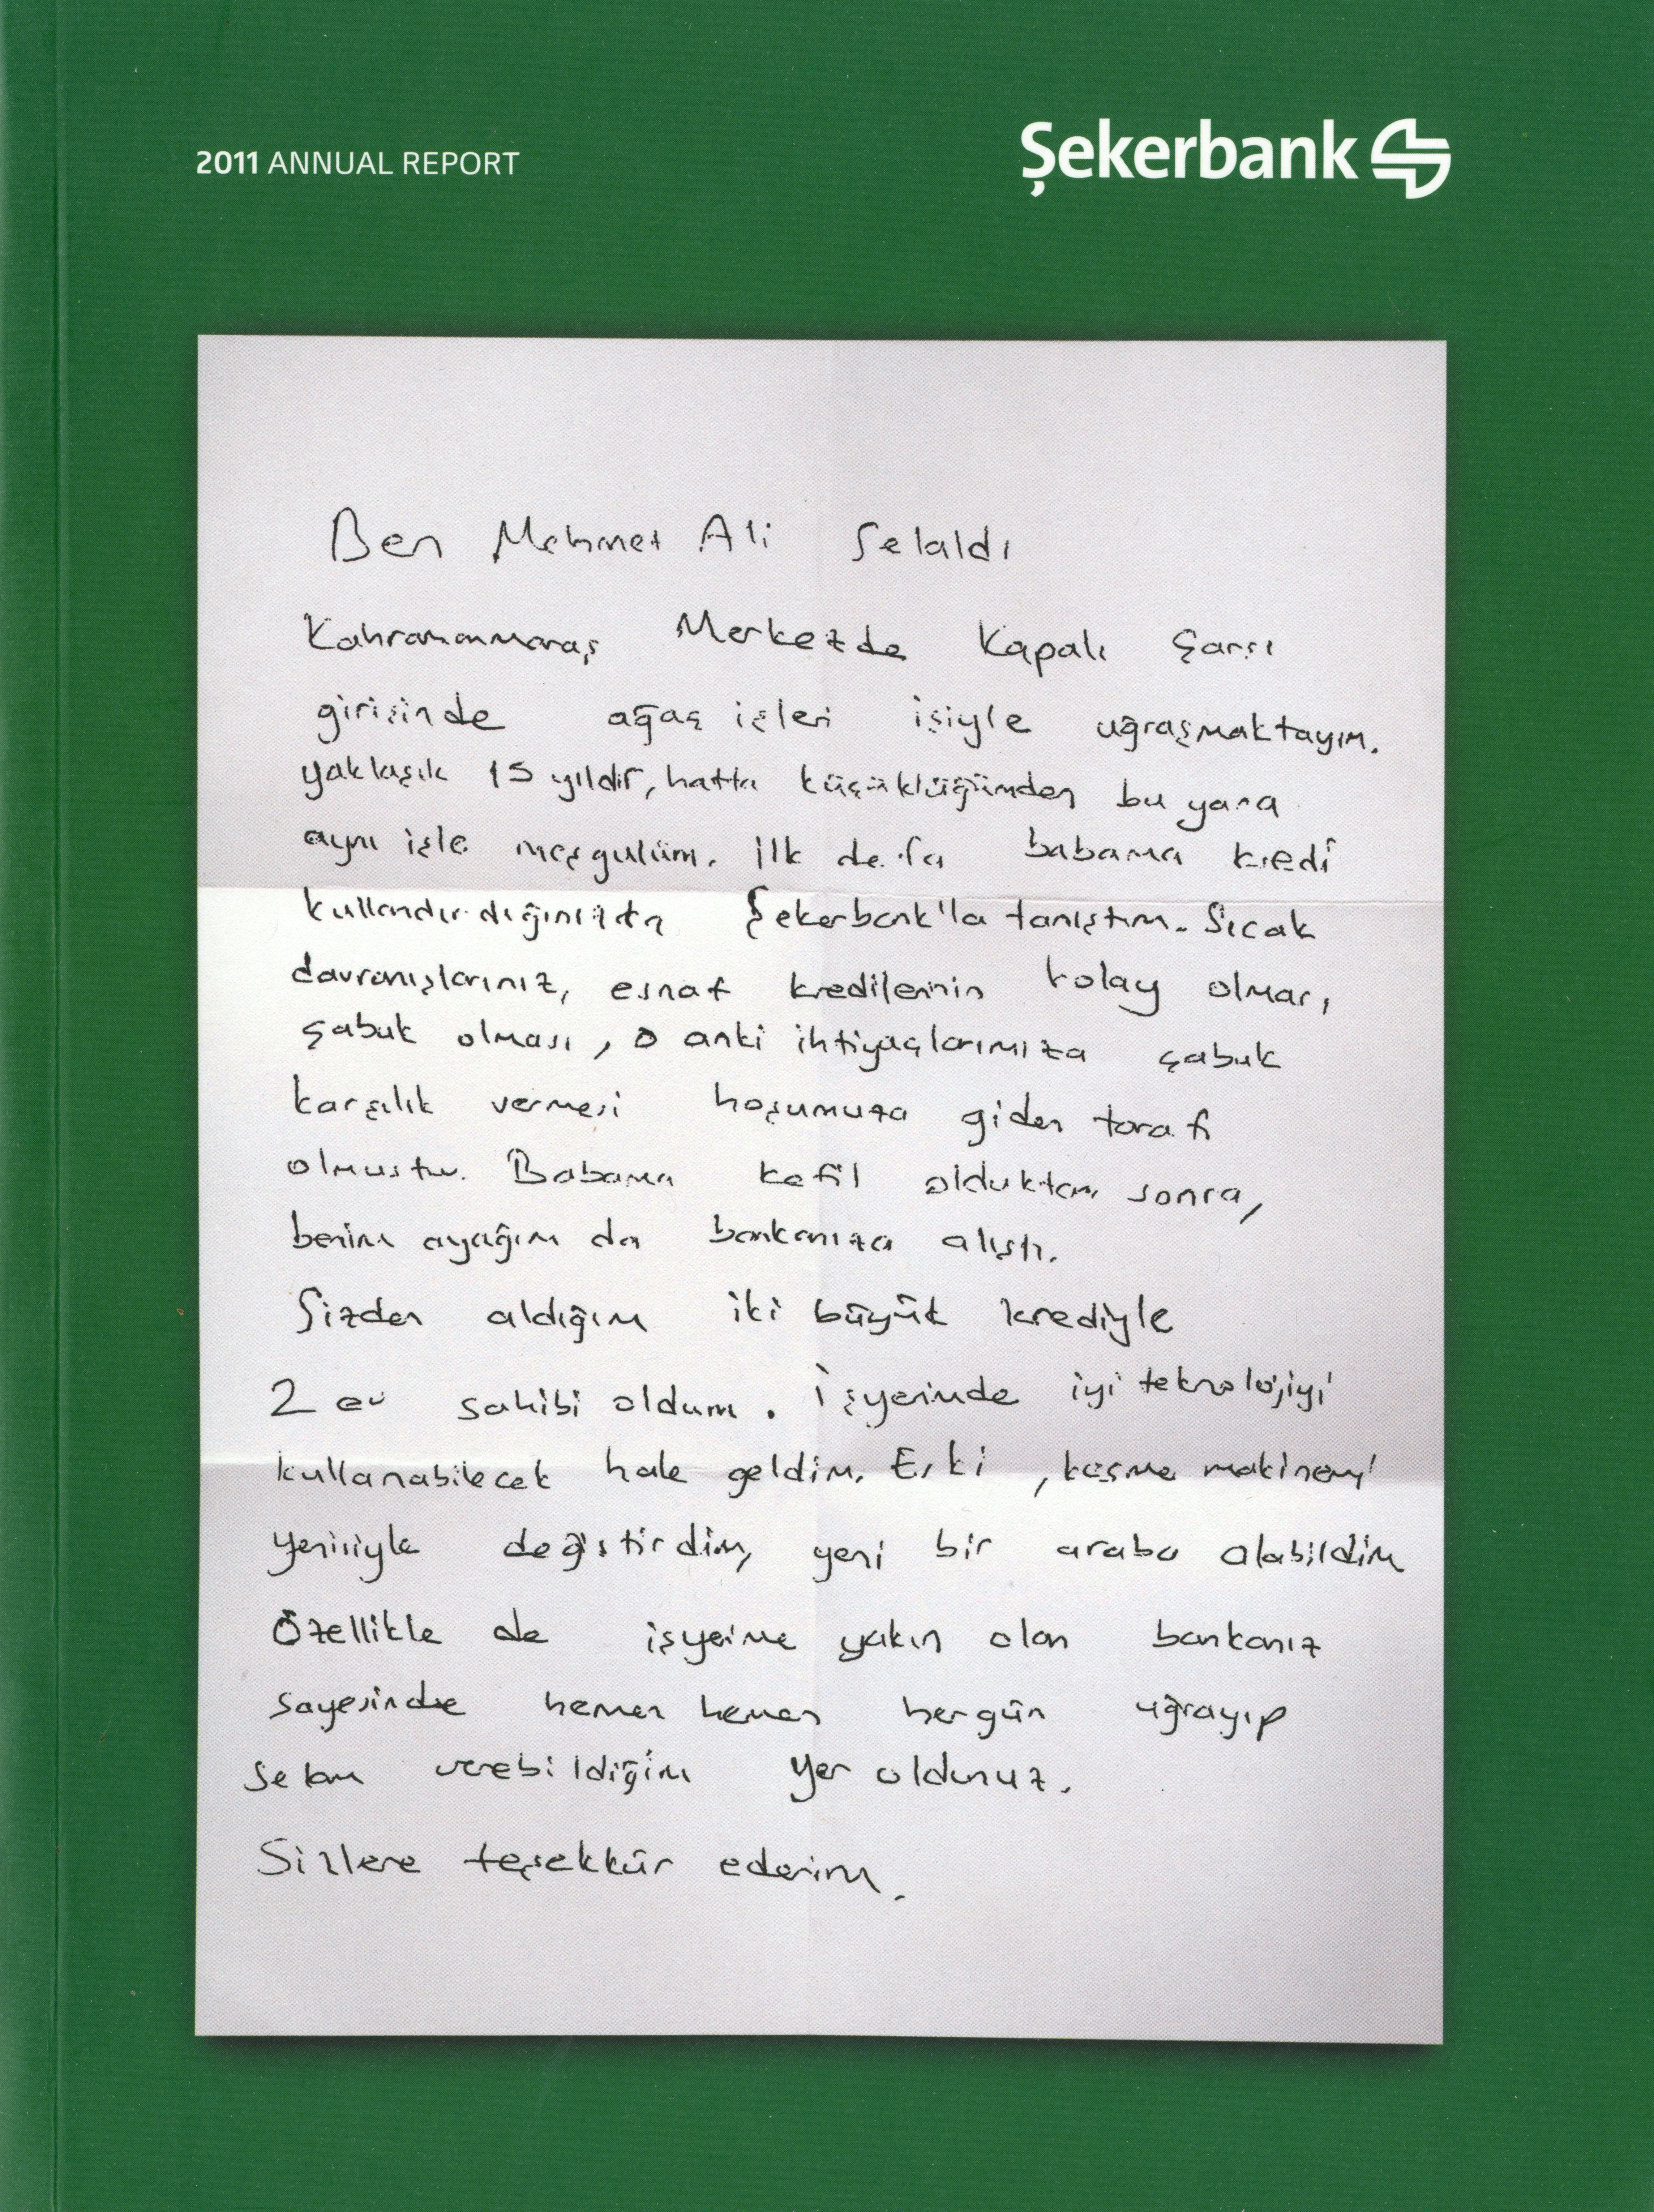 2011 ANNUAL REPORT
Şekerbank
Ben Mehmet Ali Selaldı
Kahramanmaraş Merkezde Kapalı Çarşı
girişinde ağaç işleri işiyle uğraşmaktayım.
yaklaşık 15 yıldır, hatta küçüklüğümden bu yana
aynı işle meşgulüm. İlk defa babama kredi
kullandırdığınızda Şekerbank'la tanıştım. Sıcak
davranışlarınız, esnaf kredilerinin kolay olması,
çabuk olması, o anki ihtiyaçlarımıza çabuk
karşılık vermesi hoşumuza giden tarafı
olmuştur. Babama kefil olduktan sonra,
benim ayağım da bankanıza alıştı.
Sizden aldığım iki büyük krediyle
2 ev sahibi oldum. İşyerimde iyi teknolojiyi
kullanabilecek hale geldim. Eski, kesme makinemi
yenisiyle değiştirdim, yeni bir araba alabildim
Özellikle de işyerime yakın olan bankanız
sayesinde hemen hemen hergün uğrayıp
selam verebildiğim yer oldunuz.
Sizlere teşekkür ederim.